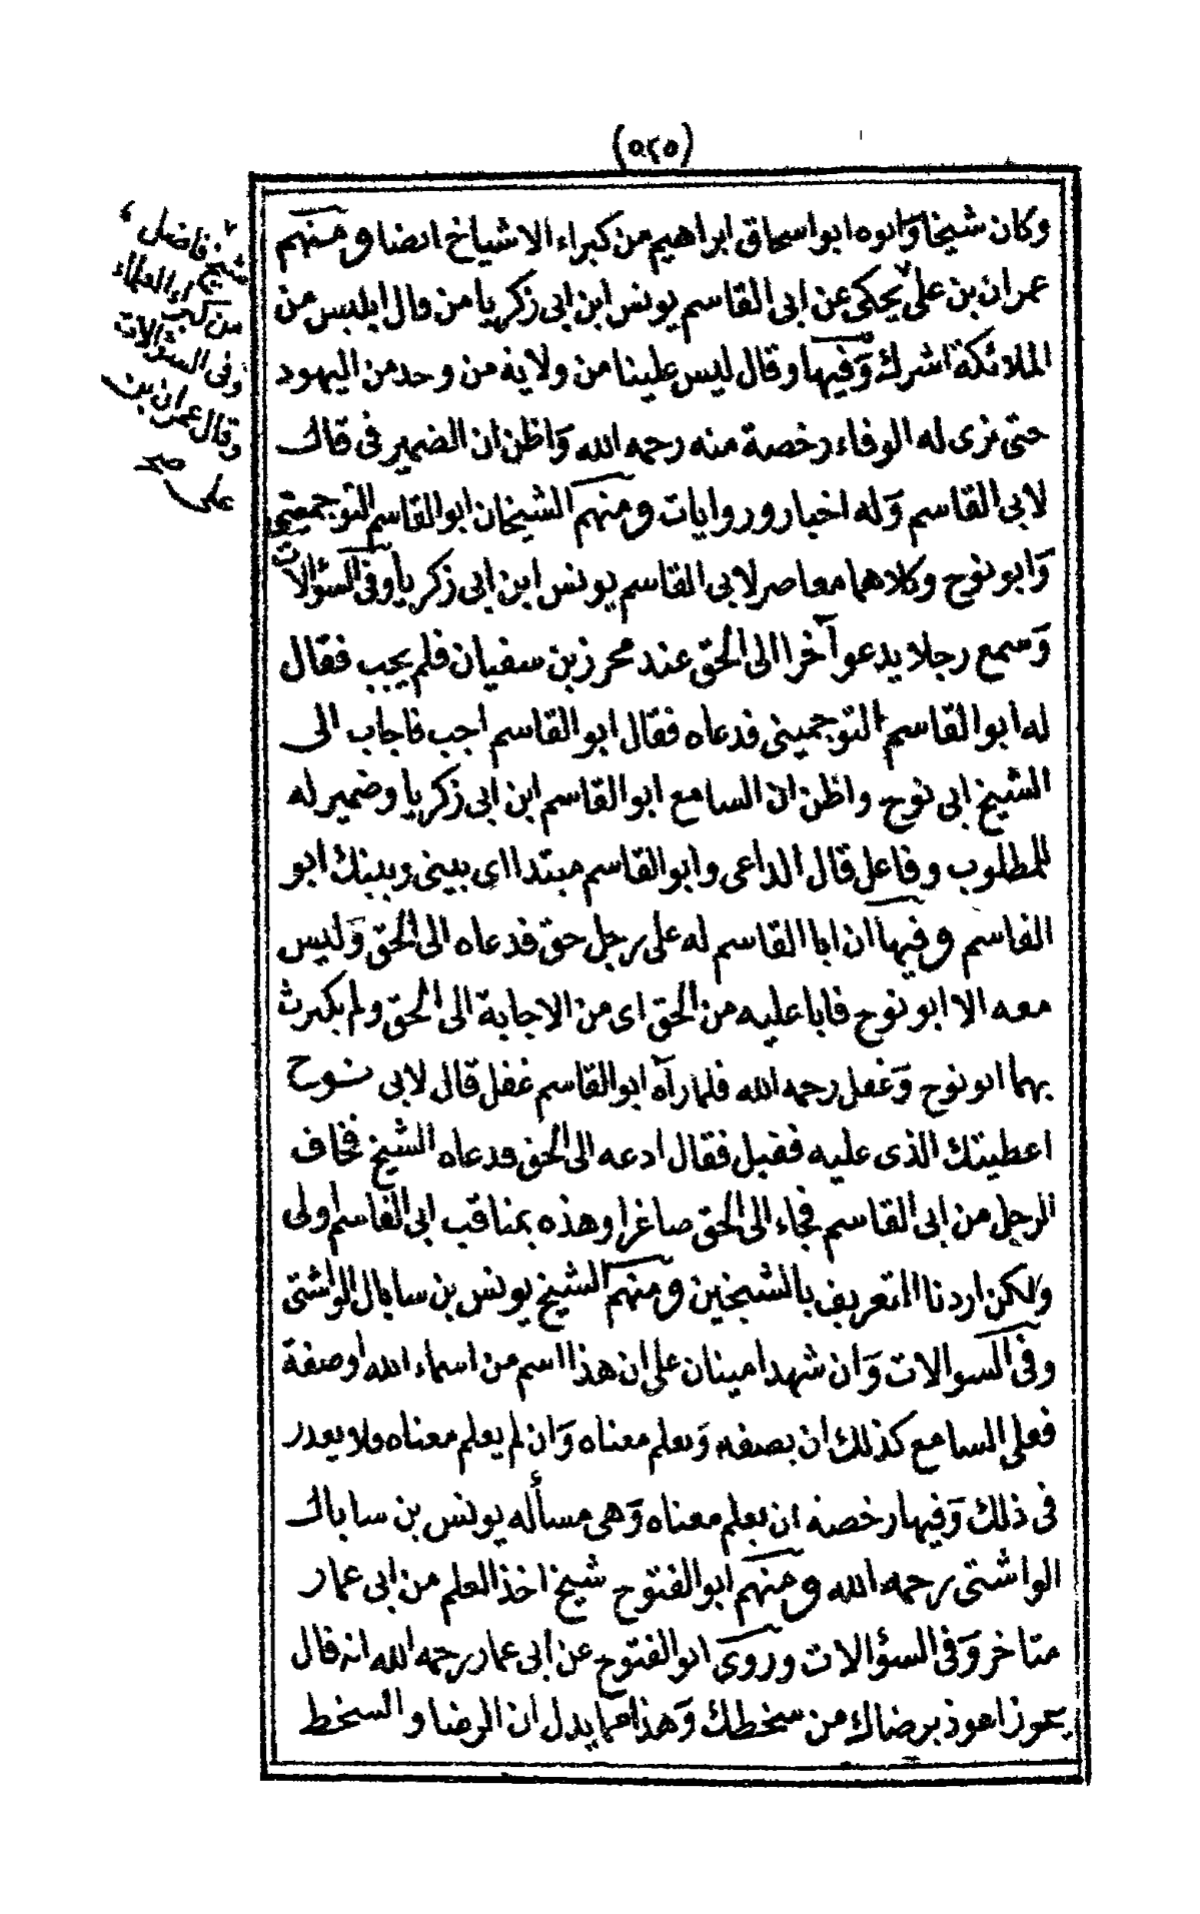 (٥٢٥)
وكان شيخا وابوه ابو اسحاق ابراهيم من كبراء الاشياخ ايضا ومنهم
عمران بن على يحكى عن ابى القاسم يونس ابن ابى زكريا من قال ابليس من
الملائكة اشرك وفيها وقال ليس علينا من ولاية من وحد من اليهود
حتى نرى له الوفاء رخصة منه رحمه الله واظن ان الضمير فى قال
لابى القاسم وله اخبار وروايات ومنهم الشيخان ابو القاسم التوجمينى
وابو نوح وكلاهما معاصر لابى القاسم يونس ابن ابى زكريا وفى السؤالات
وسمع رجلا يدعو آخرا الى الحق عند محرز بن سفيان فلم يجب فقال
له ابو القاسم التوجمينى فدعاه فقال ابو القاسم اجب فاجاب الى
الشيخ ابى نوح واظن ان السامع ابو القاسم ابن ابى زكريا وضمير له
للمطلوب وفاعل قال الداعى وابو القاسم مبتدا اى بينى وبينك ابو
القاسم وفيها ان ابا القاسم له على رجل حق فدعاه الى الحق وليس
معه الا ابو نوح فابا عليه من الحق اى من الاجابة الى الحق ولم يكترث
بهما ابو نوح وغفل رحمه الله فلما رآه ابو القاسم غفل قال لابى نوح
اعطيتك الذى عليه فقبل فقال ادعه الى الحق فدعاه الشيخ فخاف
الرجل من ابى القاسم فجاء الى الحق صاغرا وهذه بمناقب ابى القاسم اولى
ولكن اردنا التعريف بالشيخين ومنهم الشيخ يونس بن سابال الواشتى
وفى السوالات وان شهد امينان على ان هذا اسم من اسماء الله او صفة
فعلى السامع كذلك ان يصفه ويعلم معناه وان لم يعلم معناه ولا يعذر
فى ذلك وفيها رخصة ان يعلم معناه وهى مسألة يونس بن ساباك
الواشتى رحمه الله ومنهم ابو الفتوح شيخ اخذ العلم من ابى عمار
متاخر وفى السؤالات وروى ابو الفتوح عن أبى عمار رحمه الله انه قال
يجوز اعوذ برضاك من سخطك وهذا مما يدل ان الرضا والسخط
شيخ فاضل
من كبراء العلماء
وفى السؤالات
وقال عمران بن
على صح